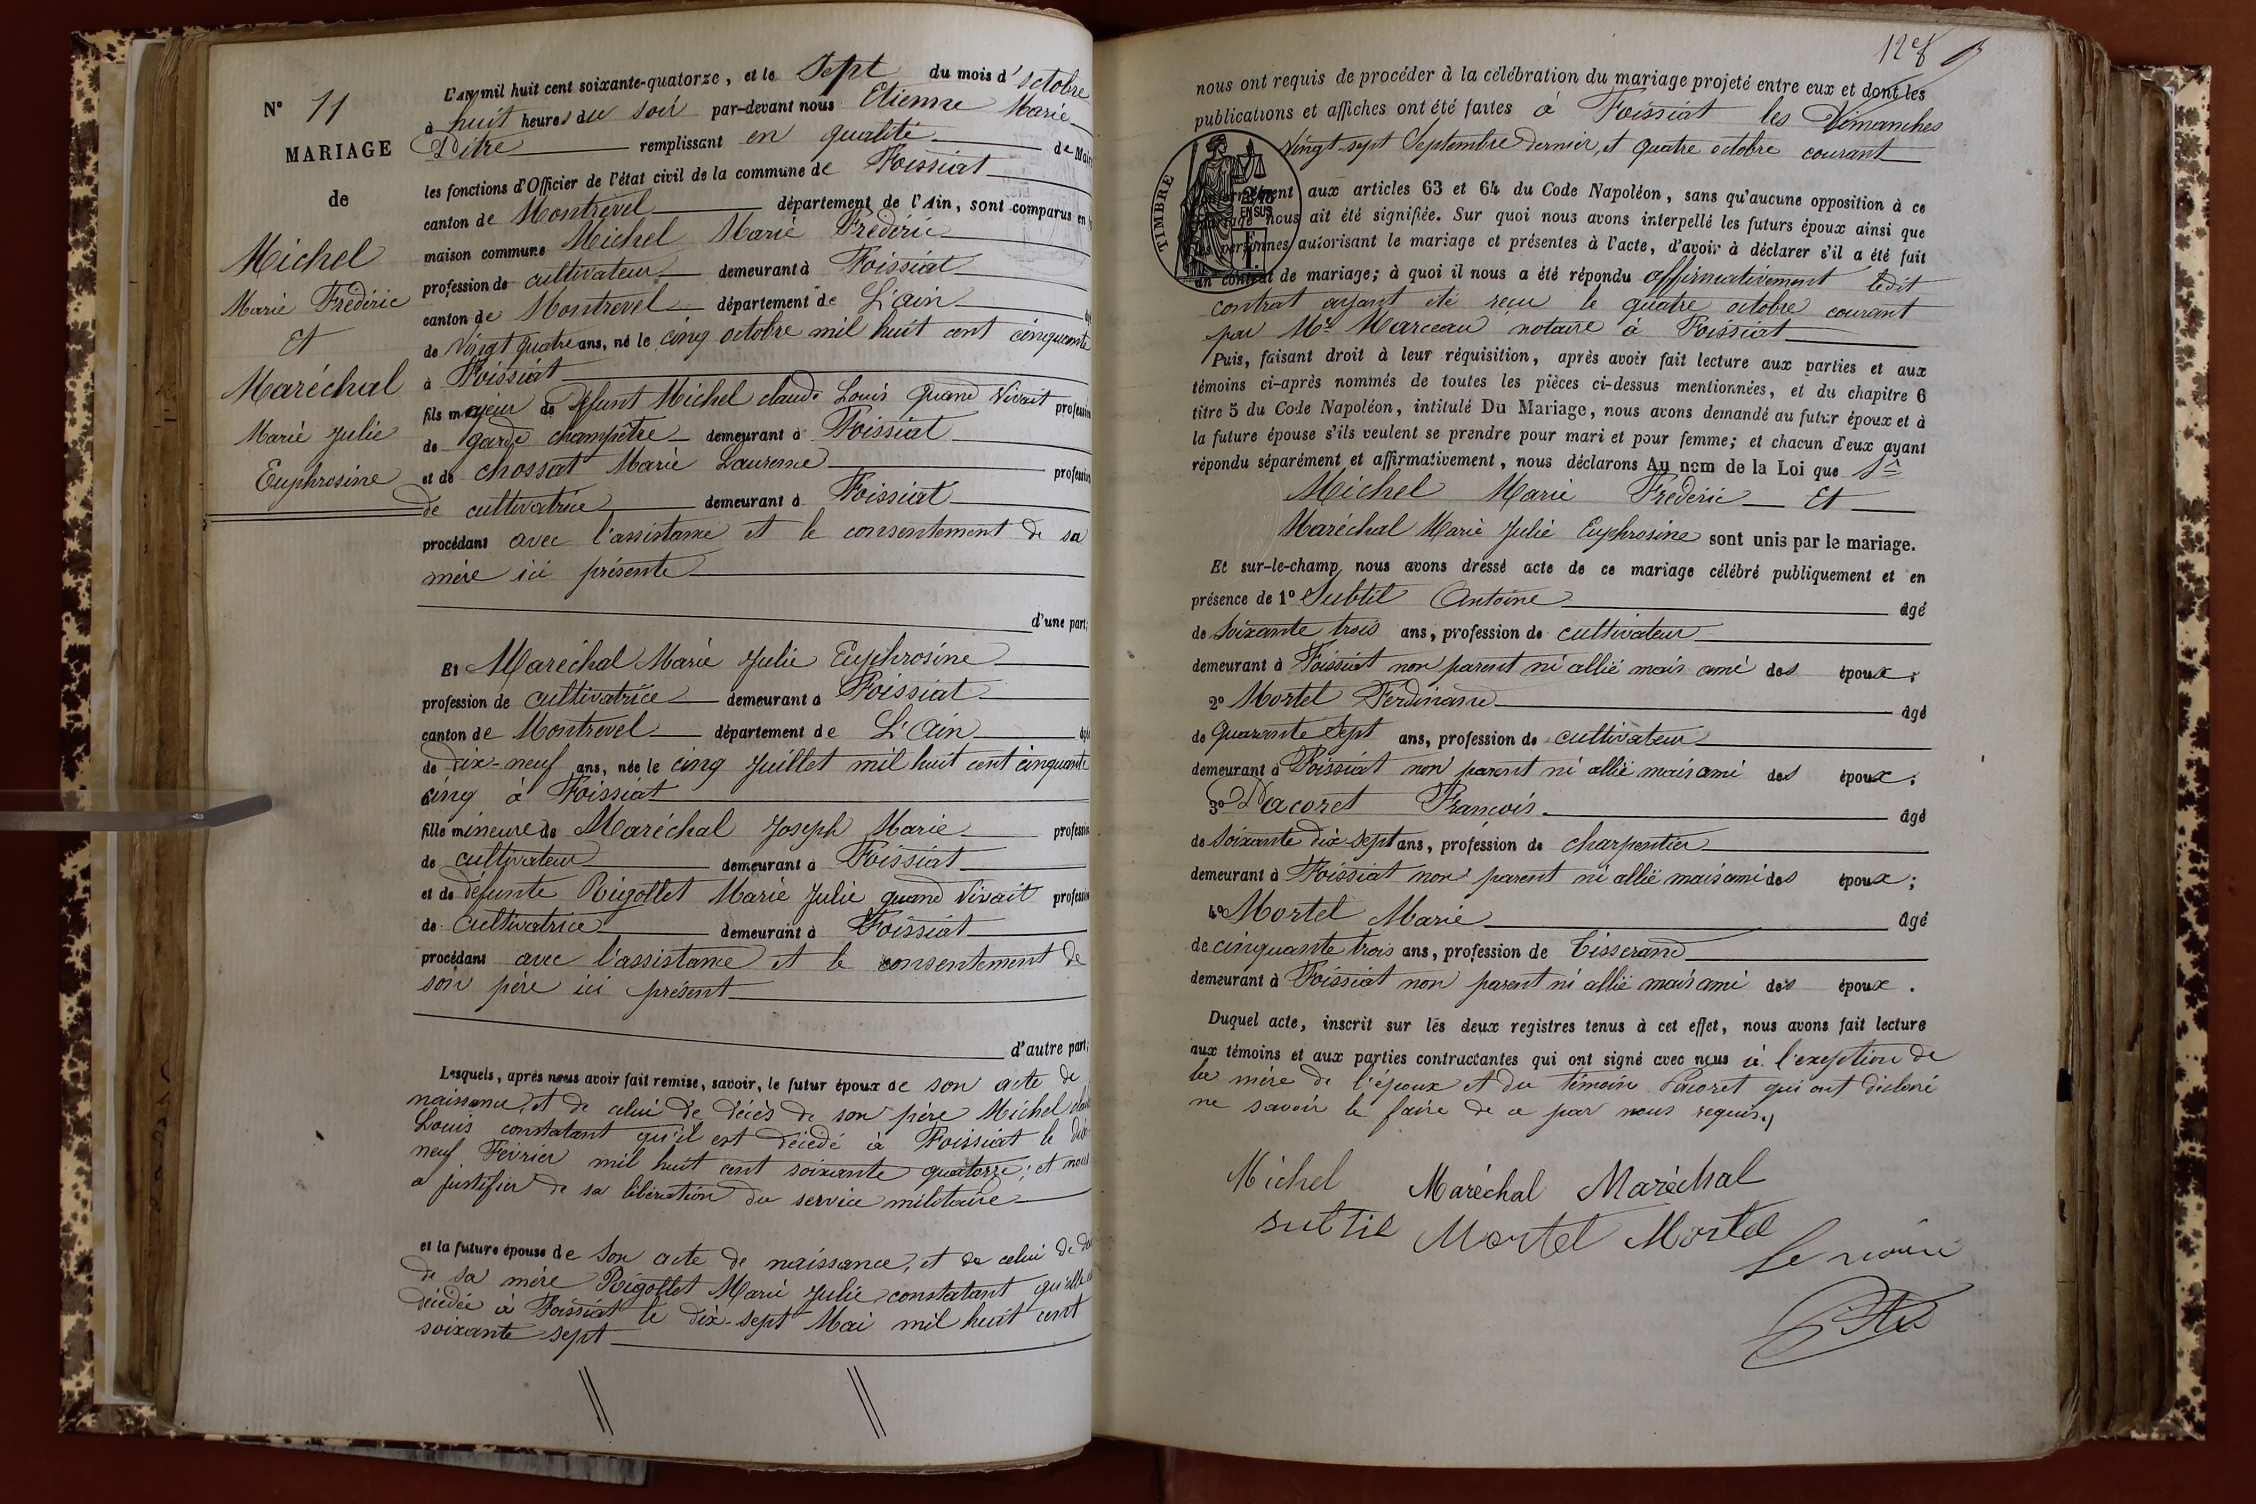 N° 11
MARIAGE
de
Michel
Marie Frédéric
et
Maréchal
Marie Julie
Euphrosine
L'an mil huit cent soixante-quatorze, et le Sept du mois d'octobre
à huit heures du soir par-devant nous Etienne Marie
Pitre remplissant en qualité de Maire
les fonctions d'Officier de l'état civil de la commune de Foissiat
canton de Montrevel département de l'Ain, sont comparus en
maison commune Michel Marie Frédéric
profession de cultivateur demeurant à Foissiat
canton de Montrevel département de L'ain
de Vingt quatre ans, né le cinq octobre mil huit cent cinquante
à Foissiat
fils majeur de défunt Michel claude Louis quand vivait profession
de garde champêtre demeurant à Foissiat
et de Chossat Marie Laurence profession
de cultivatrice demeurant à Foissiat
procédant avec l'assistance et le consentement de sa
mère ici présente
d'une part;
Et Maréchal Marie Julie Euphrosine
profession de cultivatrice demeurant à Foissiat
canton de Montrevel département de L'Ain âgée
de dix-neuf ans, née le cinq Juillet mil huit cent cinquante
cinq à Foissiat
fille mineure de Maréchal Joseph Marie profession
de cultivateur demeurant à Foissiat
et de défunte Rigollet Marie Julie quand vivait profession
de cultivatrice demeurant à Foissiat
procédant avec l'assistance et le consentement de
son père ici présent
d'autre part;
Lesquels, après nous avoir fait remise, savoir, le futur époux de son acte de
naissance, et de celui de décès de son père Michel claude
Louis constatant qu'il est décédé à Foissiat le dix-
neuf Février mil huit cent soixante quatorze; et nous
a justifier de sa libération du service militaire
et la future épouse de son acte de naissance, et de celui de
de sa mère Rigollet Marie Julie constatant qu'elle est
décédée à Foissiat le dix-sept Mai mil huit cent
soixante sept
nous ont requis de procéder à la célébration du mariage projeté entre eux et dont les
publications et affiches ont été faites à Foissiat les Dimanches
Vingt-sept Septembre dernier, et quatre octobre courant
TIMBRE
EN SUS
aux articles 63 et 64 du Code Napoléon, sans qu'aucune opposition à ce
mariage nous ait été signifiée. Sur quoi nous avons interpellé les futurs époux ainsi que
les personnes autorisant le mariage et présentes à l'acte, d'avoir à déclarer s'il a été fait
un contrat de mariage; à quoi il nous a été répondu affirmativement ledit
contrat ayant été reçu le quatre octobre courant
par Me Marceau notaire à Foissiat
Puis, faisant droit à leur réquisition, après avoir fait lecture aux parties et aux
témoins ci-après nommés de toutes les pièces ci-dessus mentionnées, et du chapitre 6
titre 5 du Code Napoléon, intitulé Du Mariage, nous avons demandé au futur époux et à
la future épouse s'ils veulent se prendre pour mari et pour femme; et chacun d'eux ayant
répondu séparément et affirmativement, nous déclarons Au nom de la Loi que
Michel Marie Frédéric et
Maréchal Marie Julie Euphrosine sont unis par le mariage.
Et sur-le-champ, nous avons dressé acte de ce mariage célébré publiquement et en
présence de 1° Subtil Antoine âgé
de soixante trois ans, profession de cultivateur
demeurant à Foissiat non parent ni allié mais ami des époux;
2° Mortel Ferdinand âgé
de quarante Sept ans, profession de cultivateur
demeurant à Foissiat non parent ni allié mais ami des époux;
3° Pacoret François âgé
de soixante dix sept ans, profession de charpentier
demeurant à Foissiat non parent ni allié mais ami des époux;
4° Mortel Marie âgé
de cinquante trois ans, profession de tisserand
demeurant à Foissiat non parent ni allié mais ami des époux.
Duquel acte, inscrit sur les deux registres tenus à cet effet, nous avons fait lecture
aux témoins et aux parties contractantes qui ont signé avec nous à l'exeption de
la mère de l'époux et du témoin Pacoret qui ont déclaré
ne savoir le faire de ce par nous requis.
Michel Maréchal Maréchal
Subtil Mortel Mortel
Le maire